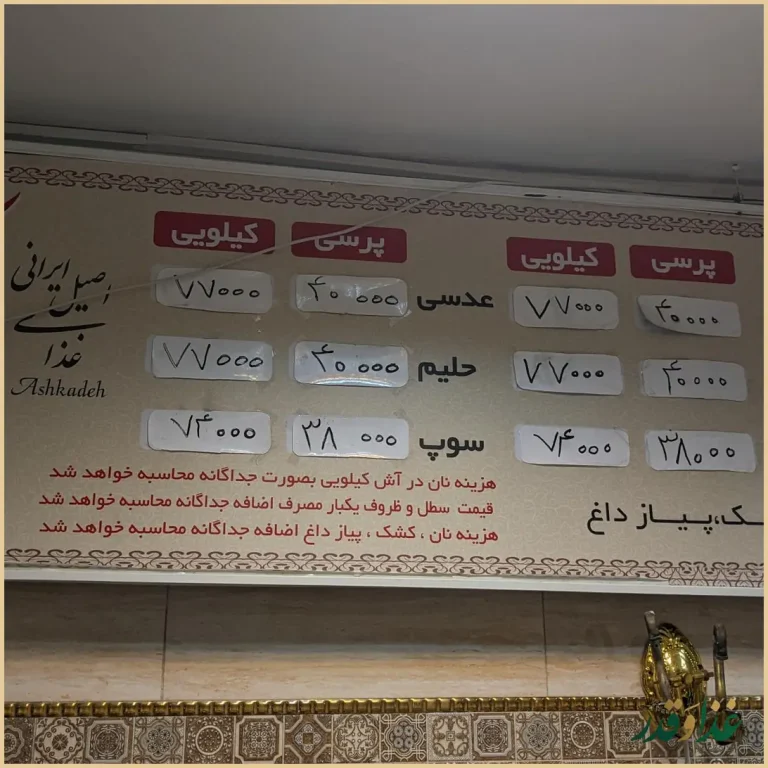 پرسی کیلویی پرسی کیلویی
۴۰۰۰۰ ۷۷۰۰۰ عدسی ۴۰۰۰۰ ۷۷۰۰۰
۴۰۰۰۰ ۷۷۰۰۰ حلیم ۴۰۰۰۰ ۷۷۰۰۰
۳۸۰۰۰ ۷۴۰۰۰ سوپ ۳۸۰۰۰ ۷۴۰۰۰
پیاز داغ
هزینه نان در آش کیلویی بصورت جداگانه محاسبه خواهد شد
قیمت سطل و ظروف یکبار مصرف اضافه جداگانه محاسبه خواهد شد
هزینه نان ، کشک ، پیاز داغ اضافه جداگانه محاسبه خواهد شد
غذای
اصیل ایرانی
Ashkadeh